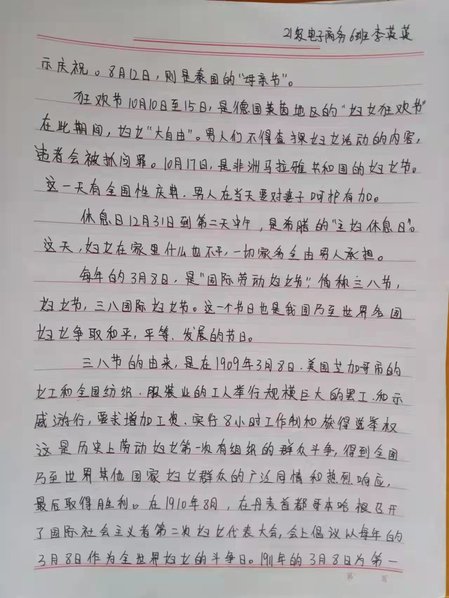 21级电子商务6班李英英
示庆祝。8月12日,则是泰国的“母亲节”。
狂欢节10月10日至15日,是德国莱茵地区的“妇女狂欢节”
在此期间,妇女“大自由”。男人们不得查课妇女活动的内容,
违者会被抓问罪。10月17日,是非洲马拉雅共和国的妇女节。
这一天有全国性庆典,男人在当天要对妻子呵护有加。
休息日12月31日到第二天中午,是希腊的“主妇休息日”。
这天,妇女在家里什么也不干,一切家务全由男人承担。
每年的3月8日,是“国际劳动妇女节”简称三八节,
妇女节,三八国际妇女节。这一个节日也是我国乃至世界各国
妇女争取和平,平等、发展的节日。
三八节的由来,是在1909年3月8日,美国芝加哥市的
女工和全国纺织、服装业的工人举行规模巨大的罢工和示
威游行,要求增加工资、实行8小时工作制和获得选举权
这是历史上劳动妇女第一次有组织的群众斗争,得到全国
乃至世界其他国家妇女群众的广泛同情和热烈响应,
最后取得胜利。在1910年8月,在丹麦首都哥本哈根召开
了国际社会主义者第二次妇女代表大会,会上倡议以每年的
3月8日作为全世界妇女的斗争日。1911年的3月8日为第一
第 页